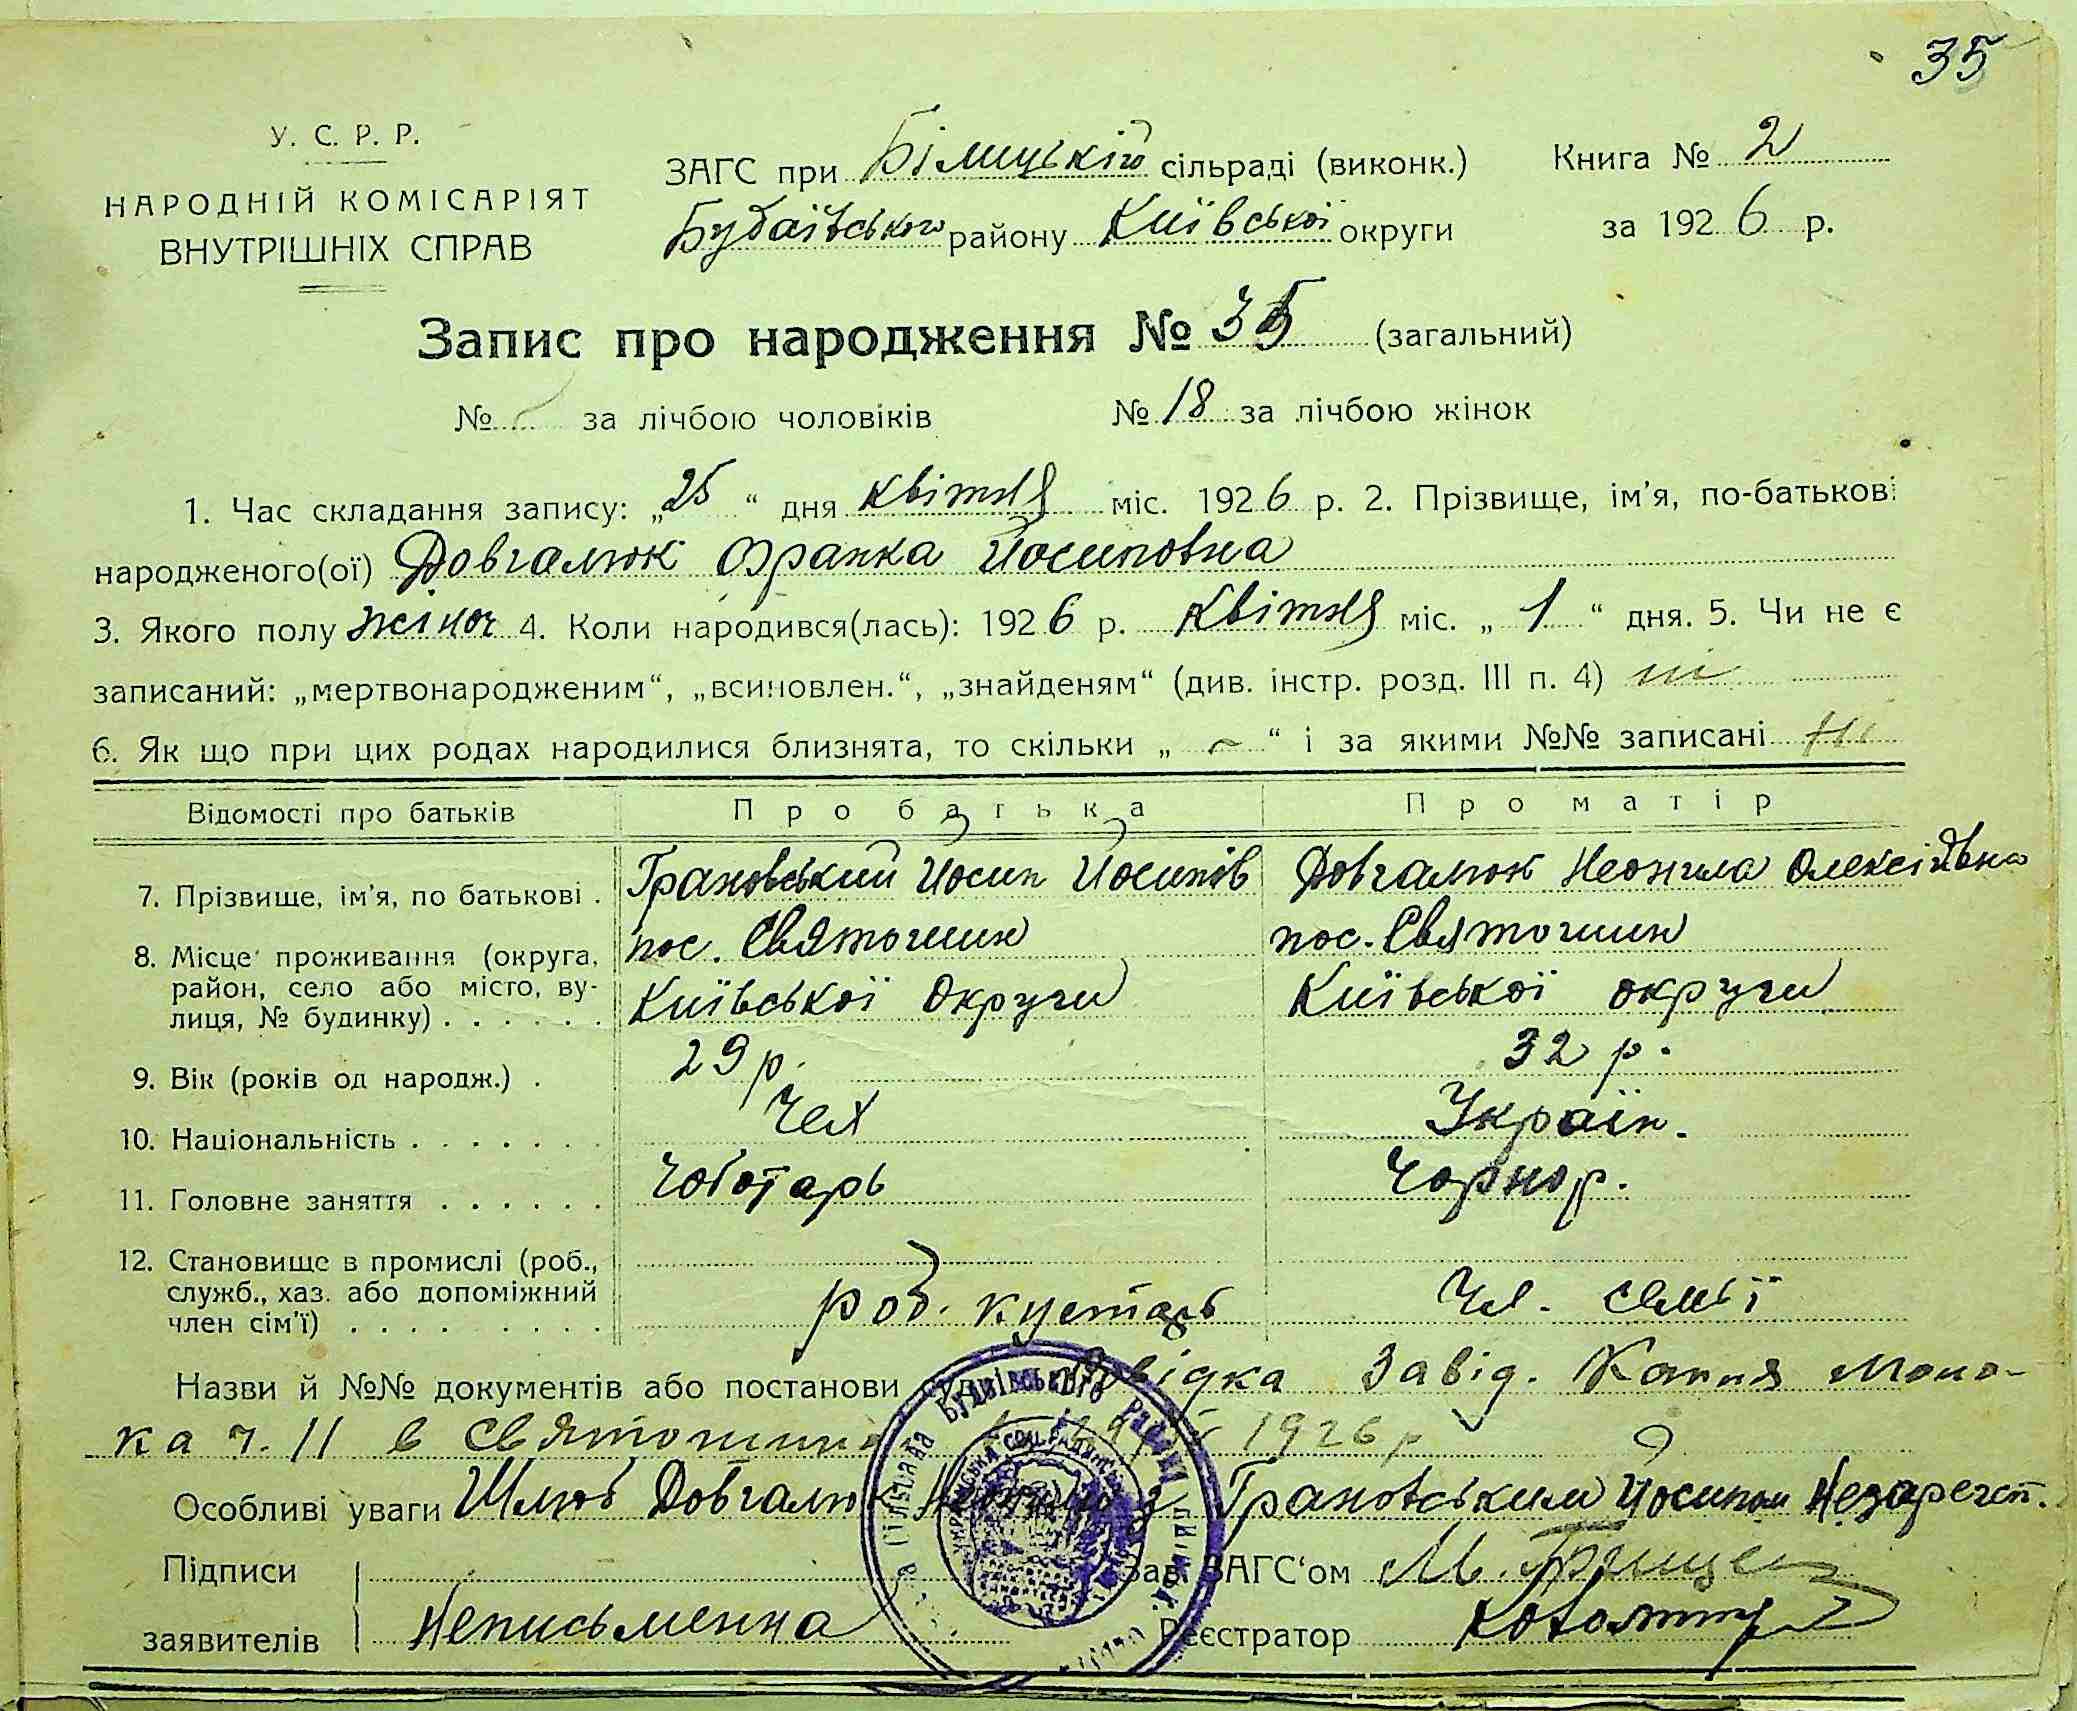 35
У. С. Р. Р.
НАРОДНІЙ КОМІСАРІЯТ
ВНУТРІШНІХ СПРАВ
ЗАГС при Білицькій сільраді (виконк.)
Будаївського району Київської округи
Книга № 2
за 1926 р.
Запис про народження № 35 (загальний)
№ за лічбою чоловіків № 18 за лічбою жінок
1. Час складання запису: „25“ дня квітня міс. 1926 р. 2. Прізвище, ім'я, по-батькові
народженого(ої) Довгалюк Франка Йосиповна
3. Якого полу жіноч 4. Коли народився(лась): 1926 р. Квітня міс. „1“ дня. 5. Чи не є
записаний: „мертвонародженим“, „всиновлен.“, „знайденям“ (див. інстр. розд. III п. 4) ні
6. Як що при цих родах народилися близнята, то скільки „ ~ “ і за якими №№ записані ні
Відомості про батьків Про батька Про матір
7. Прізвище, ім'я, по батькові . Грановський Йосип Йосипів Довгалюк Неонила Олексіївна
8. Місце проживання (округа, район, село або місто, ву-лиця, № будинку) . . . . . . пос. Святошин Київської Округи пос. Святошин Київської округи
9. Вік (років од народж.) . 29 р. 32 р.
10. Національність . . . . . . . Чех Україн.
11. Головне заняття . . . . . . Чоботарь Чорнор.
12. Становище в промислі (роб., служб., хаз. або допоміжний член сім'ї) . . . . . . . . . роб. кустарь Чл. семьї
Назви й №№ документів або постанови Довідка Завід.
ка ч. 11 в Святошині 1926 р
Особливі уваги Шлюб Довгалюк з Грановським Йосипом Незареєст.
Підписи Зав. ЗАГС'ом М. Грищен
заявителів Неписьменна Реєстратор